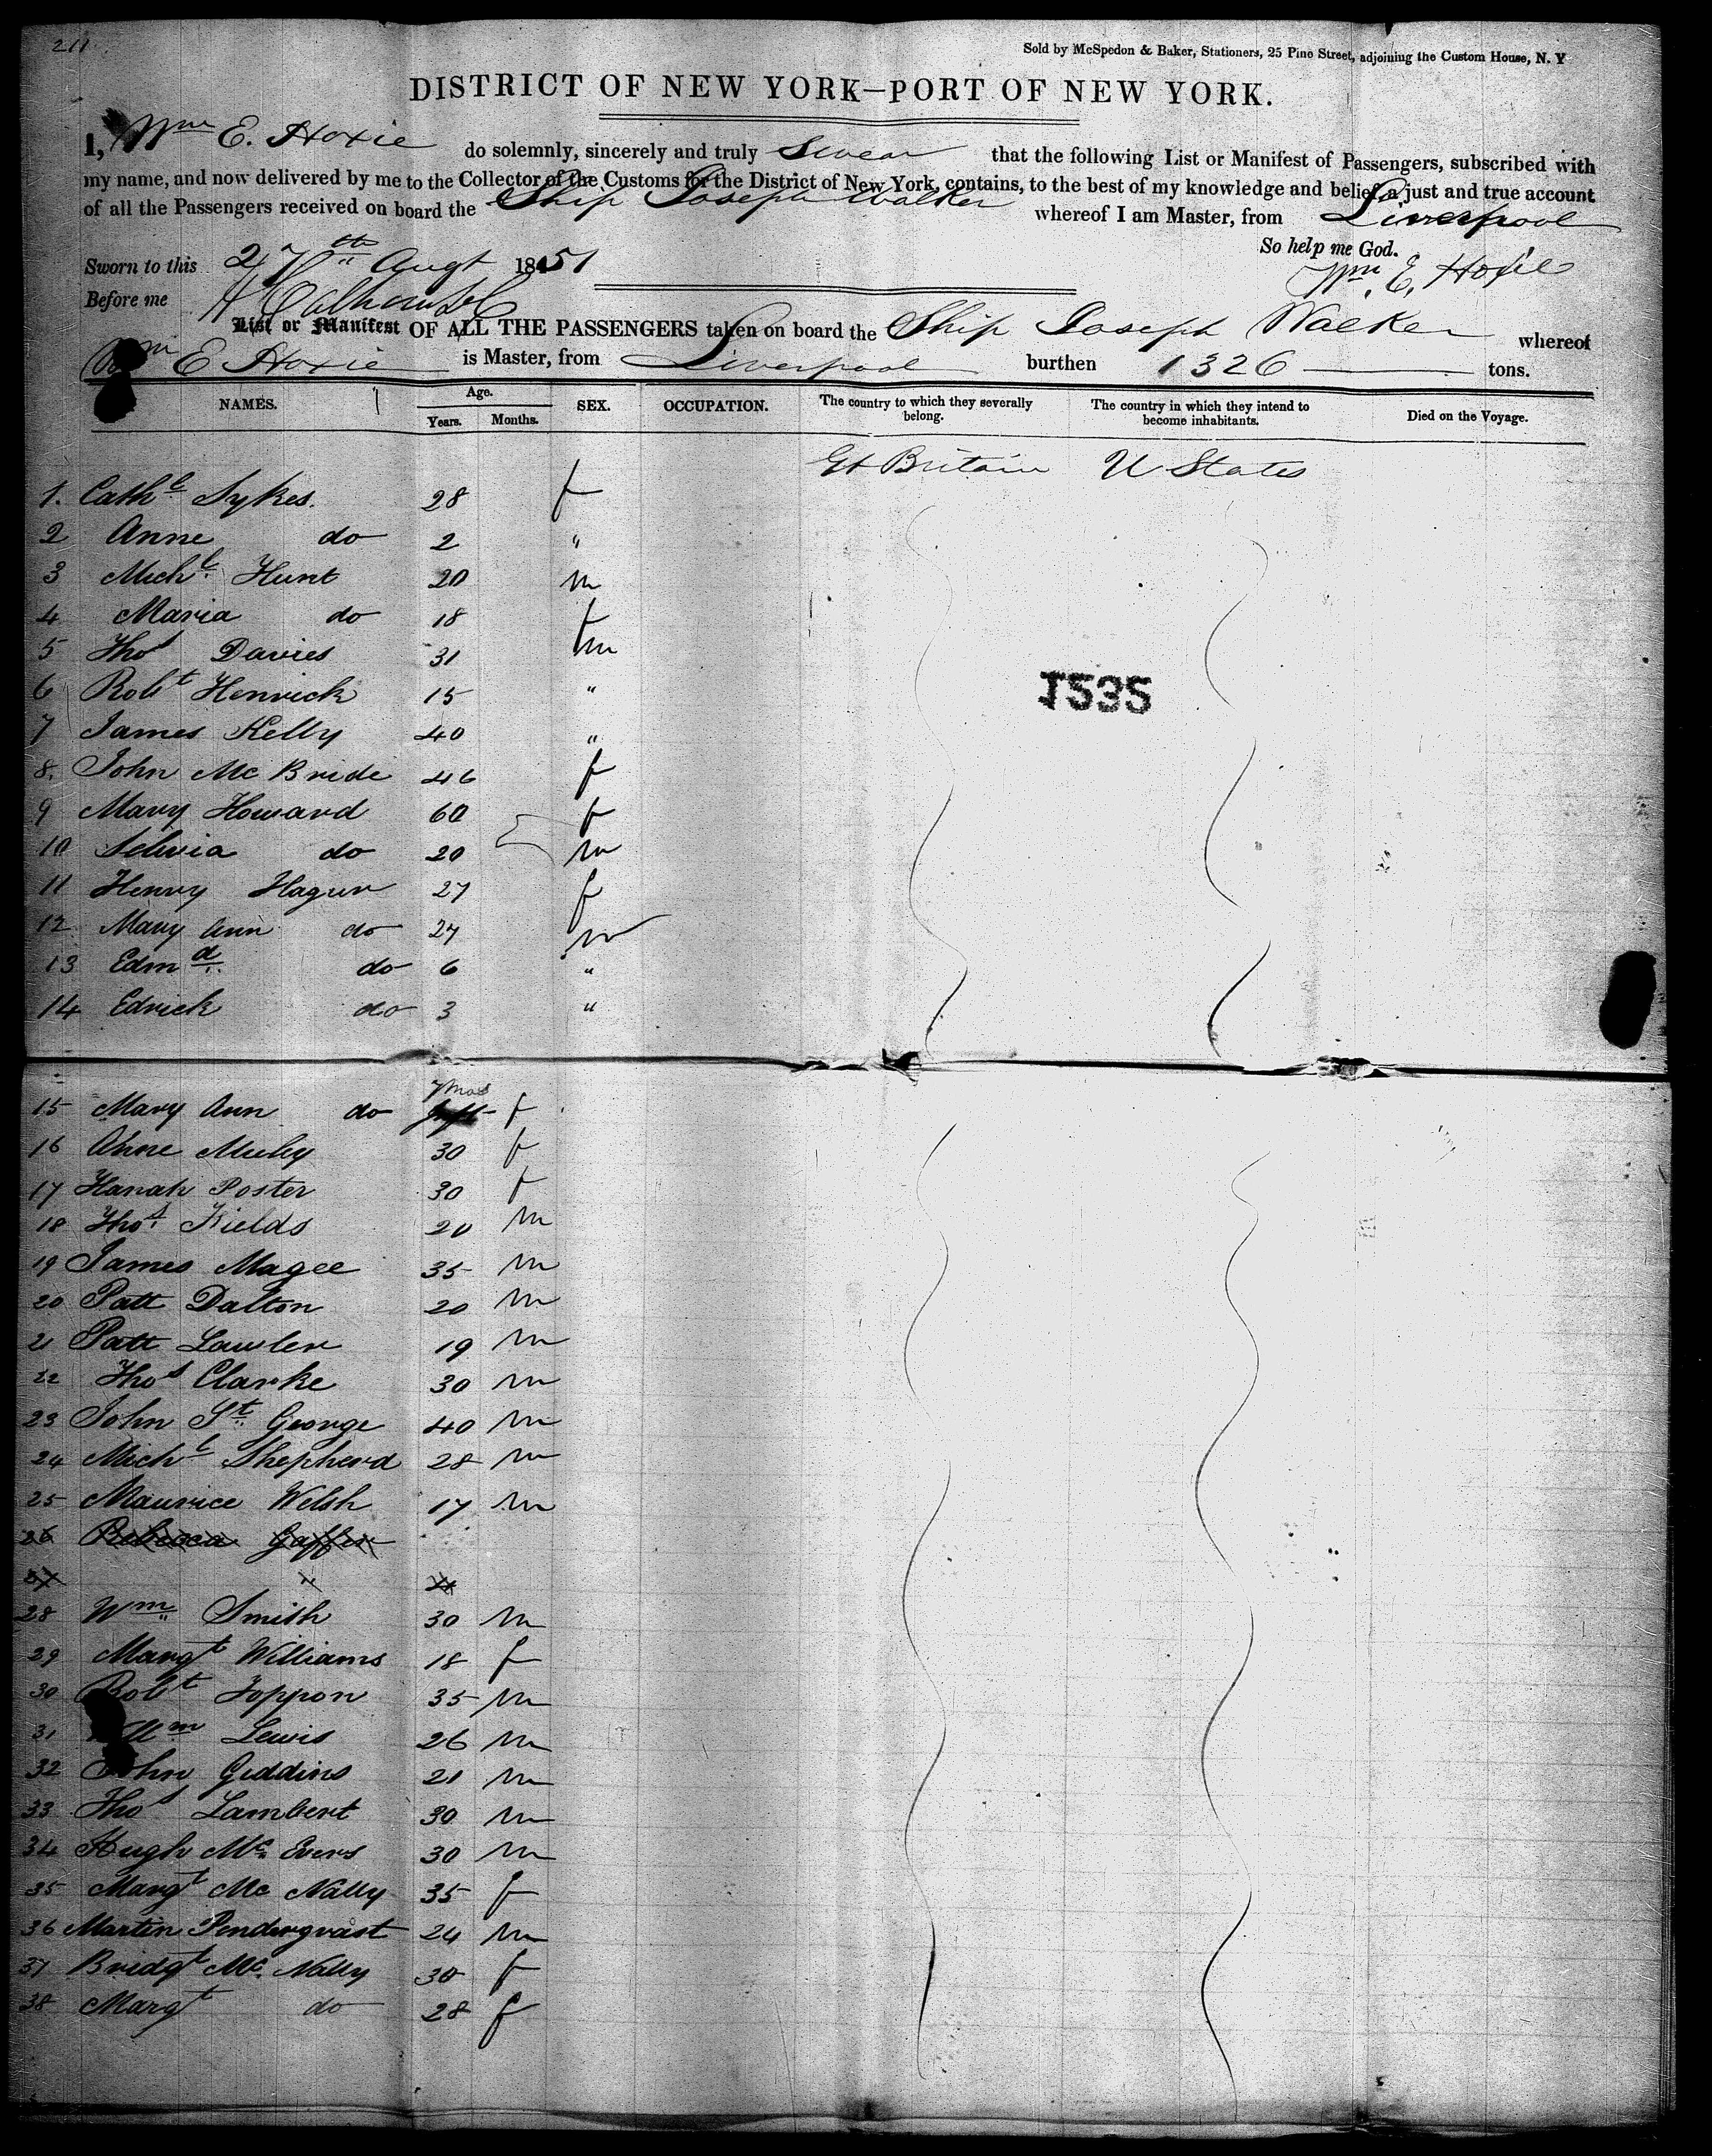 211
Sold by McSpedon & Baker, Stationers, 25 Pine Street, adjoining the Custom House, N. Y
DISTRICT OF NEW YORK—PORT OF NEW YORK.
I, Wm E. Hoxie do solemnly, sincerely and truly Swear that the following List or Manifest of Passengers, subscribed with
my name, and now delivered by me to the Collector of the Customs for the District of New York, contains, to the best of my knowledge and belief, a just and true account
of all the Passengers received on board the Ship Joseph Walker whereof I am Master, from Liverpool
So help me God.
Sworn to this 27th Augt 1851 Wm. E. Hoxie
Before me
List or Manifest OF ALL THE PASSENGERS taken on board the Ship Joseph Walker whereof
Wm E Hoxie is Master, from Liverpool burthen 1326 tons.
NAMES. Age. Years. Months. SEX. OCCUPATION. The country to which they severally belong. The country in which they intend to become inhabitants. Died on the Voyage.
Gt Britain U States
1. Cathe Sykes. 28 f
2 Anne do 2 "
3 Michl Hunt 20 m
4 Maria do 18 f
5 Thos Davies 31 m
6 Robt Henrick 15 "
1535
7 James Kelly 40 "
8. John Mc Bride 46 f
9 Mary Howard 60 f
10 Selivia do 20 m
11 Henry Hagur 27 f
12 Mary Ann do 27 m
13 Edmd do 6 "
14 Edrick do 3 "
15 Mary Ann do 7 mos f
16 Anne Muley 30 f
17 Hanah Poster 30 f
18 Thos Fields 20 m
19 James Magee 35 m
20 Patt Dalton 20 m
21 Patt Lawler 19 m
22 Thos Clarke 30 m
23 John St George 40 m
24 Michl Shepherd 28 m
25 Maurice Welsh 17 m
26 Rebecca Gaffer
27 "
28 Wm Smith 30 m
29 Margt Williams 18 f
30 Robt Toppon 35 m
31 Wm Lewis 26 m
32 John Giddins 21 m
33 Thos Lambert 30 m
34 Hugh Mc Evers 30 m
35 Margt Mc Nally 35 f
36 Martin Pendergrast 24 m
37 Bridgt Mc Nally 30 f
38 Margt do 28 f